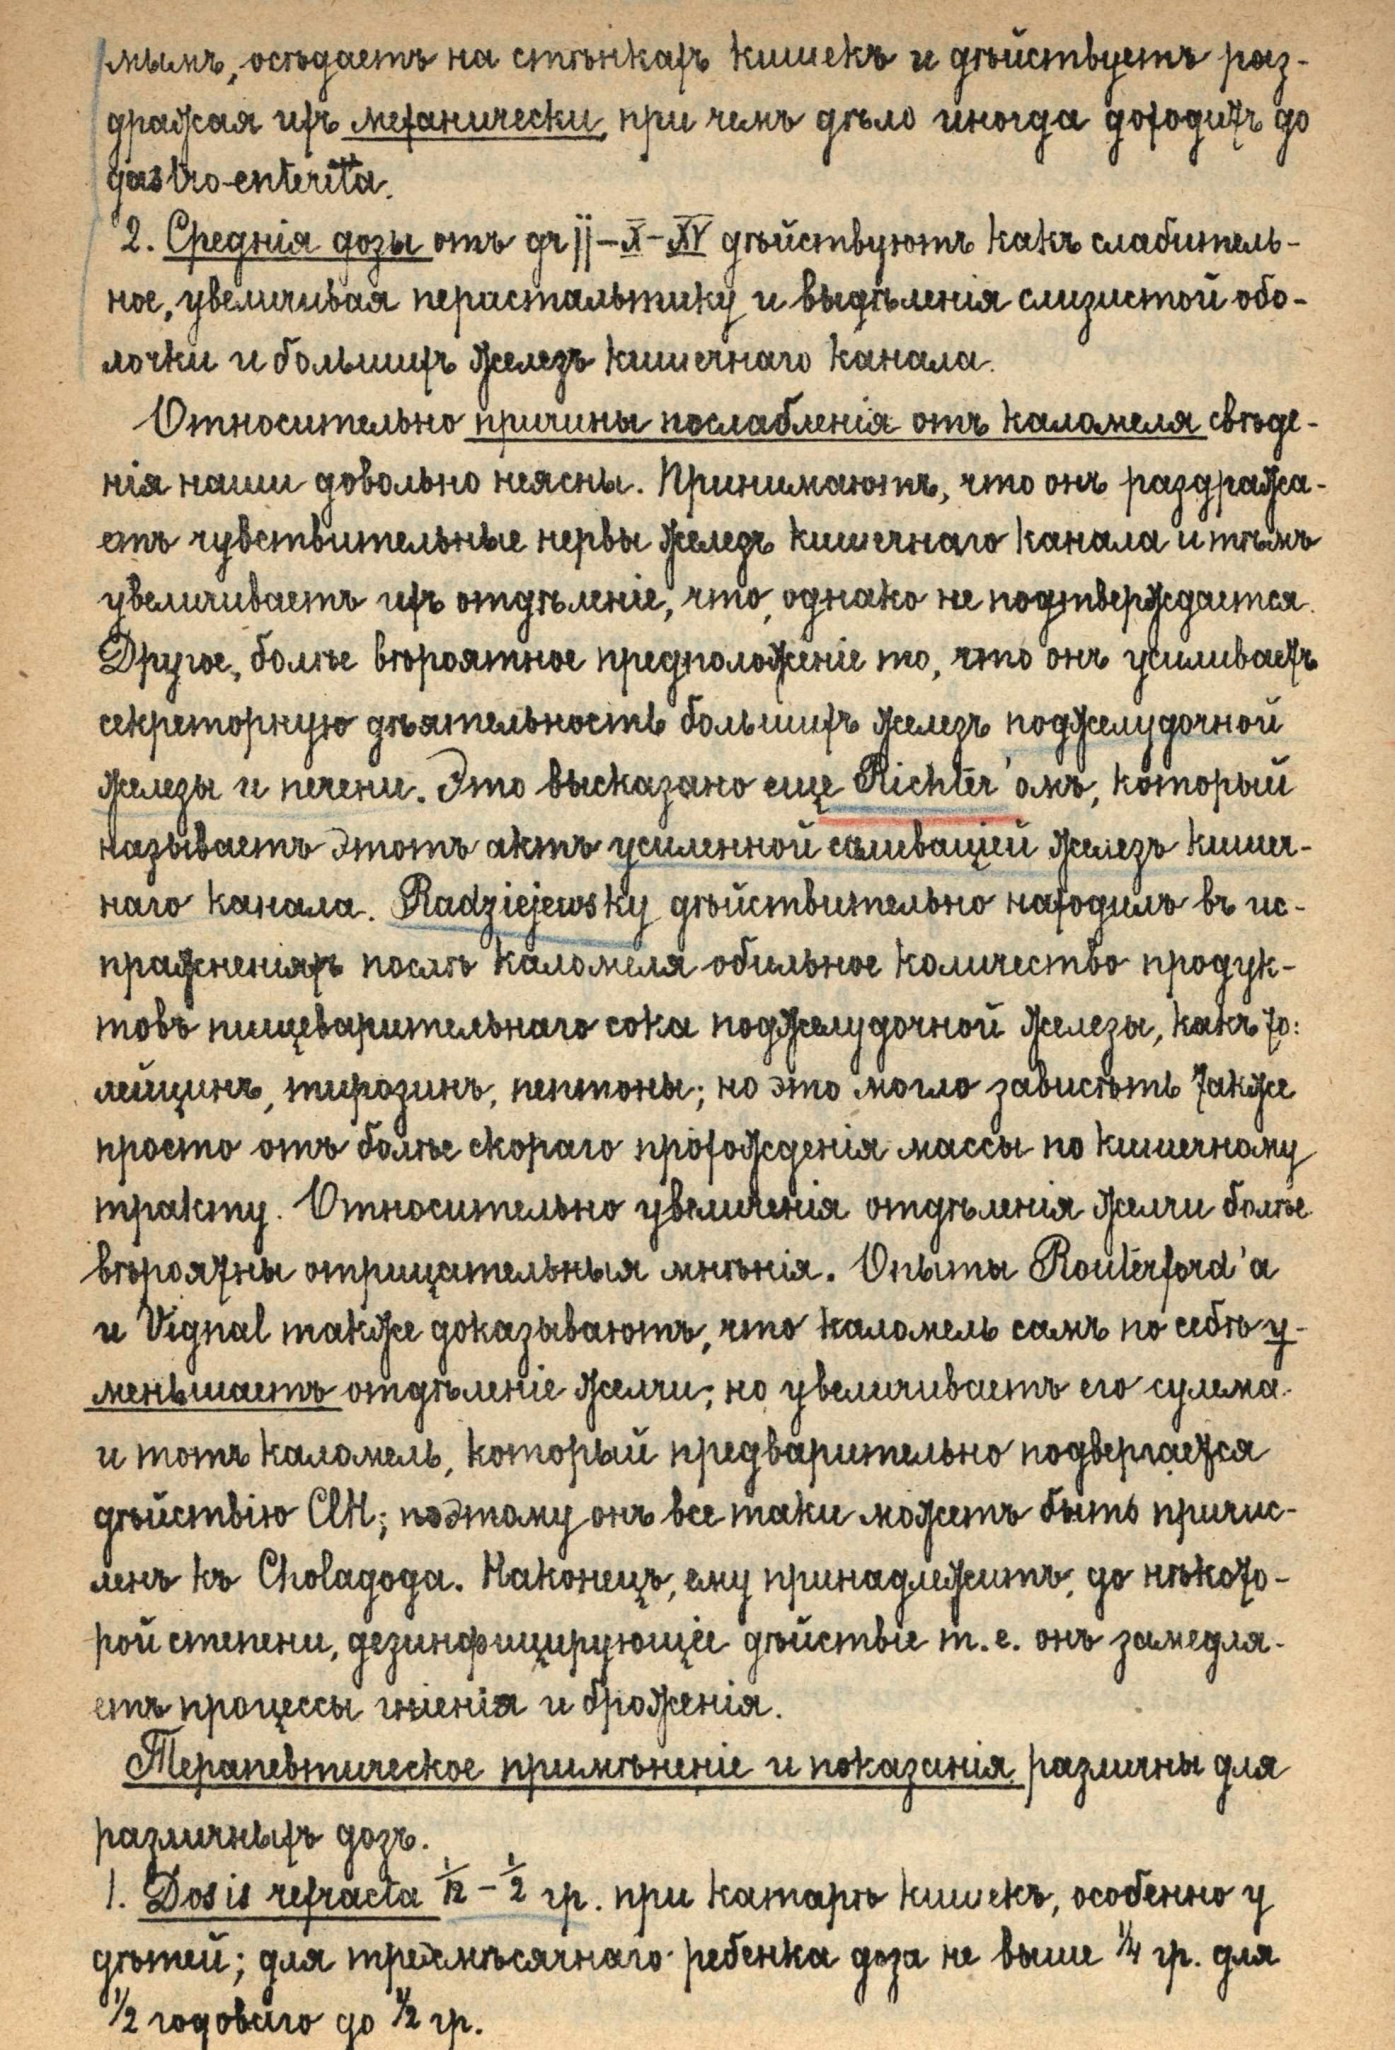 мымъ, осѣдаетъ на стѣнкахъ кишекъ и дѣйствуетъ раз-
дражая ихъ механически, при чемъ дѣло иногда доходитъ до
gastro-enterit'а.
2. Среднія дозы отъ gr jj–X–XV дѣйствуютъ какъ слабитель-
ное, увеличивая перистальтику и выдѣленія слизистой обо-
лочки и большихъ железъ кишечнаго канала.
Относительно причины послабленія отъ каломеля свѣде-
нія наши довольно неясны. Принимаютъ, что онъ раздража-
етъ чувствительные нервы железъ кишечнаго канала и тѣмъ
увеличиваетъ ихъ отдѣленіе, что, однако не подтверждается.
Другое, болѣе вѣроятное предположеніе то, что онъ усиливаетъ
секреторную дѣятельность большихъ железъ поджелудочной
железы и печени. Это высказано еще Richter'омъ, который
называетъ этотъ актъ усиленной саливаціей железъ кишеч-
наго канала. Radziejewsky дѣйствительно находилъ въ ис-
пражненіяхъ послѣ каломеля обильное количество продук-
товъ пищеварительнаго сока поджелудочной железы, какъ то:
лейцинъ, тирозинъ, пептоны; но это могло зависѣть также
просто отъ болѣе скораго прохожденія массы по кишечному
тракту. Относительно увеличенія отдѣленія желчи болѣе
вѣроятны отрицательныя мнѣнія. Опыты Routerford'а
и Vignal также доказываютъ, что каломель самъ по себѣ у-
меньшаетъ отдѣленіе желчи; но увеличиваетъ его сулема
и тотъ каломель, который предварительно подвергается
дѣйствію ClH; поэтому онъ все таки можетъ быть причис-
ленъ къ Cholagoga. Наконецъ, ему принадлежитъ, до нѣкото-
рой степени, дезинфицирующее дѣйствіе т.е. онъ замедля-
етъ процессы гніенія и броженія.
Терапевтическое примѣненіе и показанія различны для
различныхъ дозъ.
1. Dosis refracta 1/12 – 1/2 гр. при катарѣ кишекъ, особенно у
дѣтей; для трехмѣсячнаго ребенка доза не выше 1/4 гр. для
1/2 годового до 1/2 гр.